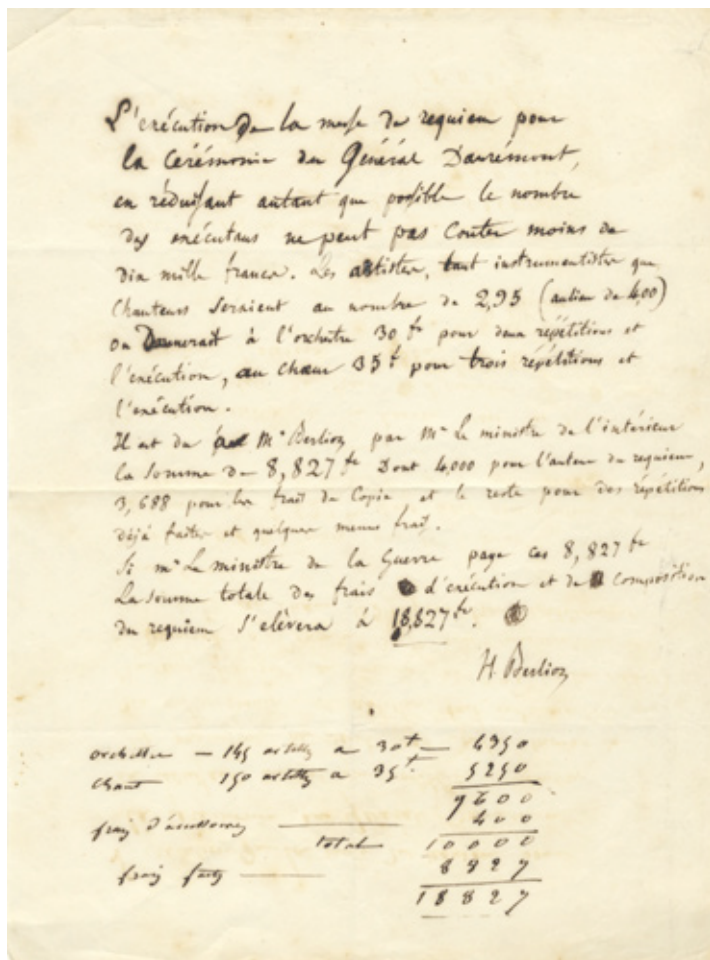 L'exécution de la messe de requiem pour
la Cérémonie du Général Daurémont,
en réduisant autant que possible le nombre
des exécutans ne peut pas Couter moins de
dix mille francs. Les artistes, tant instrumentistes que
Chanteurs seraient au nombre de 2,95 (au lieu de 4,00)
on Donnerait à l'orchestre 30 fr pour deux répétitions et
l'exécution, au chœur 35 f pour trois répétitions et
l'exécution.
Il est du à Mr Berlioz par Mr Le ministre de l'intérieur
la Somme de 8,827 fr Dont 4,000 pour l'auteur du requiem,
3,688 pour les frais de Copie et le reste pour des répétitions
déjà faites et quelques menus frais.
Si mr Le ministre de la Guerre paye ces 8,827 fr
La Somme totale des frais d'exécution et de composition
du requiem s'elèvera à 18,827 fr.
H. Berlioz
orchestre — 145 artistes a 30 f — 4350
chant 150 artistes a 35 f. 5250
9600
frais d'accessoires — 400
total 10000
frais faits — 8827
18827